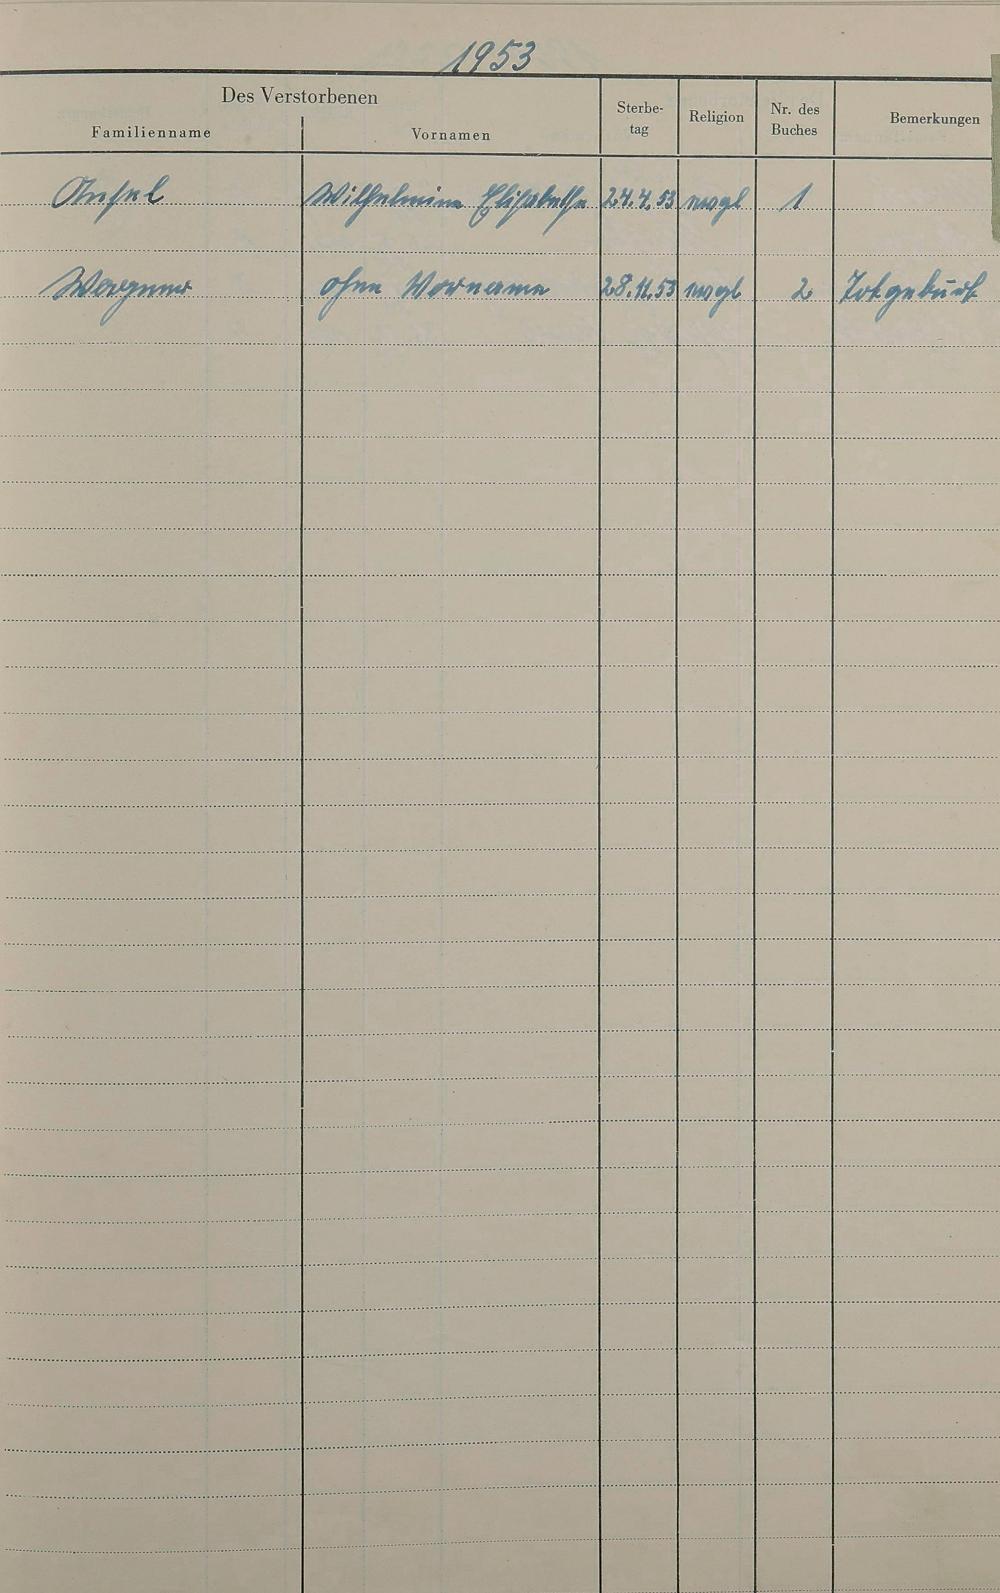 1953
Des Verstorbenen
Familienname Vornamen Sterbe-
tag Religion Nr. des
Buches Bemerkungen
Wilhelmine Elisabethe 24.4.53 evgl 1
Wagner ohne Vorname 28.11.53 evgl 2 Totgeburt